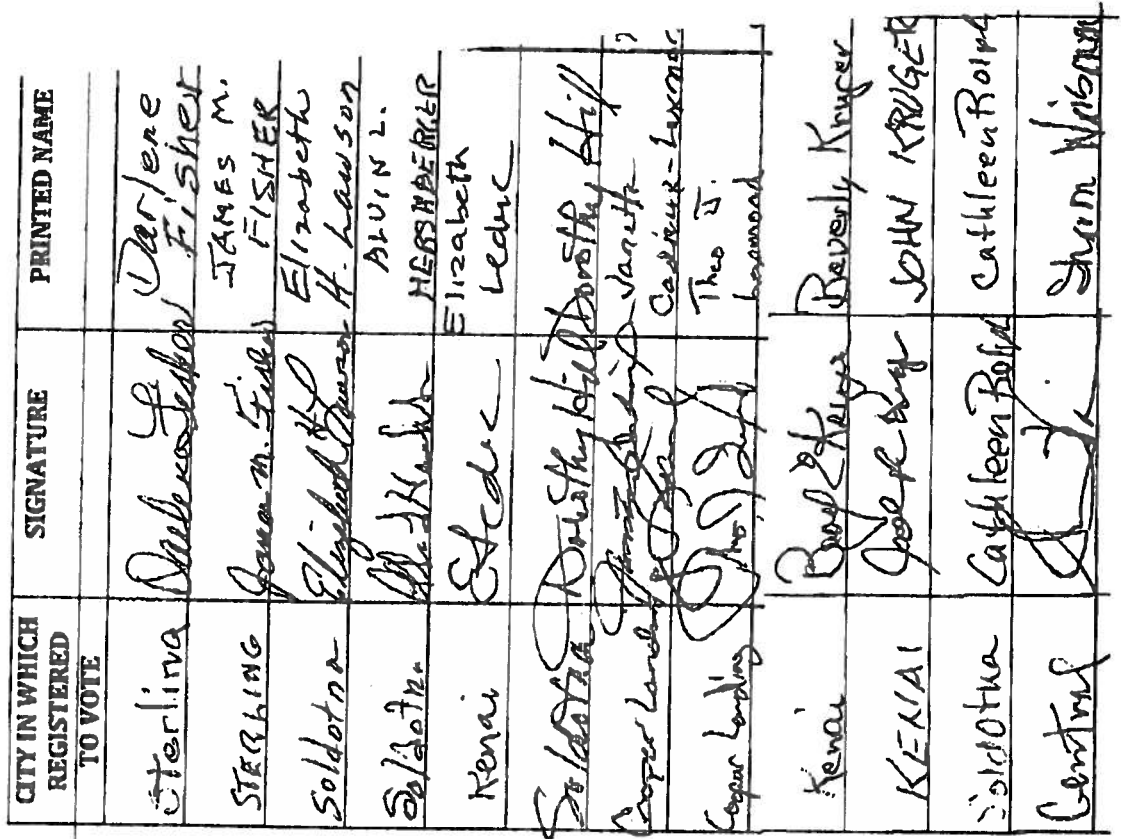 CITY IN WHICH REGISTERED TO VOTE SIGNATURE PRINTED NAME
Sterling Darlene Fisher Darlene Fisher
STERLING James M. Fisher JAMES M. FISHER
Soldotna Elizabeth H Lawson Elizabeth H. Lawson
Soldotna ALVIN L. HERSHBERGER
Kenai E Leduc Elizabeth Leduc
Soldotna Dorothy Hill Dorothy Hill
Cooper Landing Janette
Cooper Landing Theo J.
Kenai Beverly Kruger
KENAI JOHN KRUGER
Soldotna Cathleen Rolph Cathleen Rolph